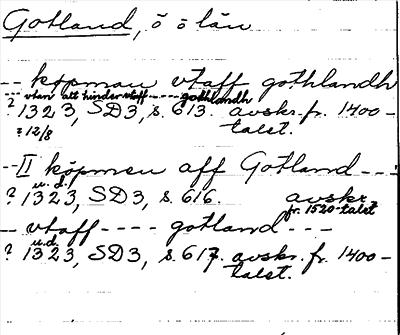 Gotland, ö o län
-- köpman vtaff gothlandh
vtan alt hinder vtaff ---- gothlandh
? 1323, SD3, s. 613. avskr. fr. 1400-
? 12/8 talet.
-- II köpmen aff Gotland ---
u.d.
? 1323, SD3, s. 616. avskr.
fr. 1520-talet
- vtaff ---- gotland ---
u.d.
? 1323, SD3, s. 617. avskr. fr. 1400-
talet.